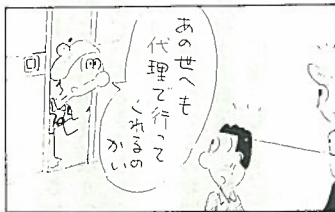 あの世へも
代理で行って
くれるの
かい